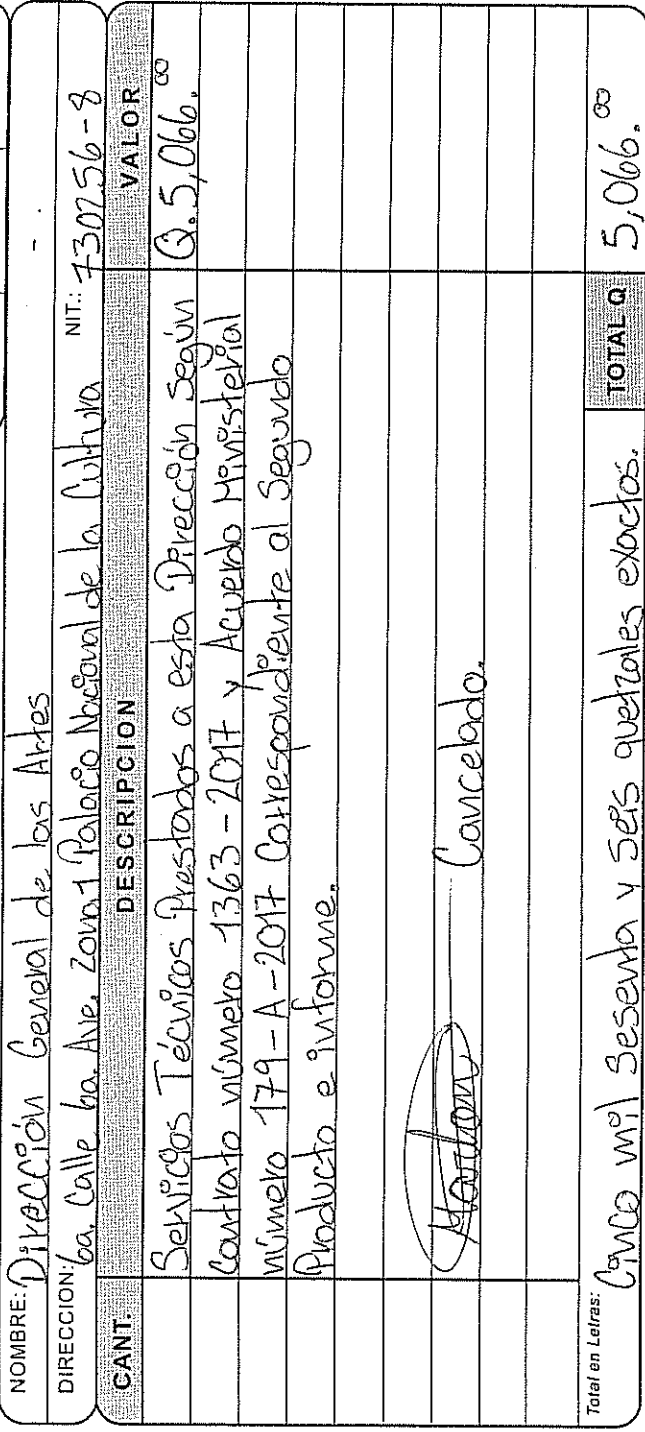 NOMBRE: Dirección General de las Artes
DIRECCION: 6a. Calle 6a. Ave. Zona 1 Palacio Nacional de la Cultura NIT.: 730256-8
CANT. DESCRIPCION VALOR
Servicios Técnicos Prestados a esta Dirección según Q.5,066.00
Contrato número 1363-2017 y Acuerdo Ministerial
número 179-A-2017 Correspondiente al Segundo
Producto e informe.
Cancelado.
Total en Letras: Cinco mil sesenta y seis quetzales exactos. TOTAL Q 5,066.00